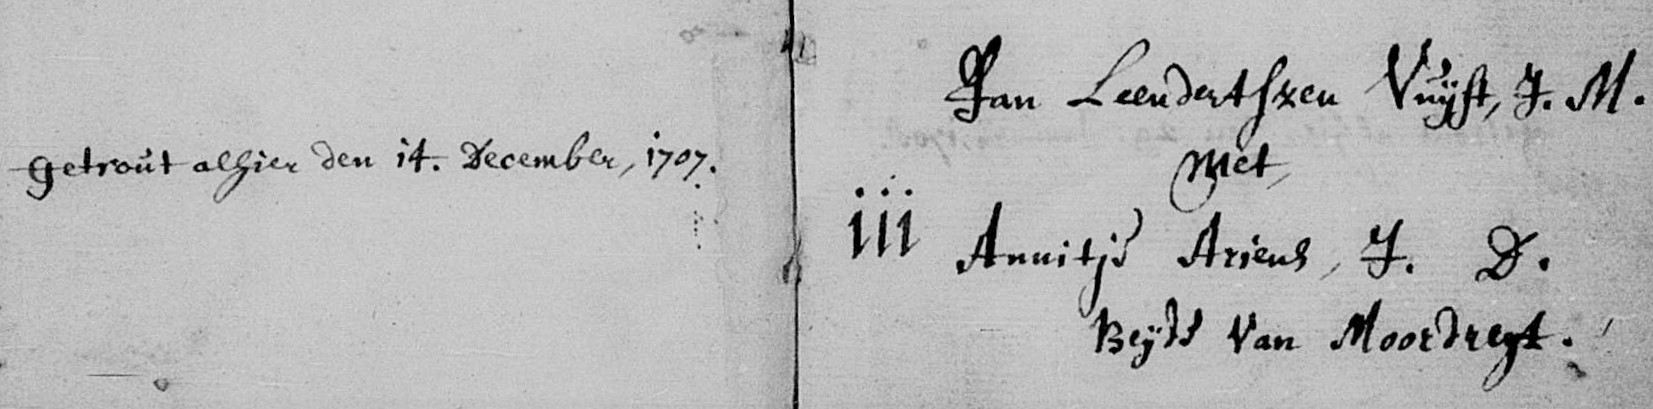 getrout alhier den 14. December, 1707.
Jan Leendertszen Vuijst, J. M.
Met,
iii Annitje Ariens, J. D.
Beyde Van Moordregt.